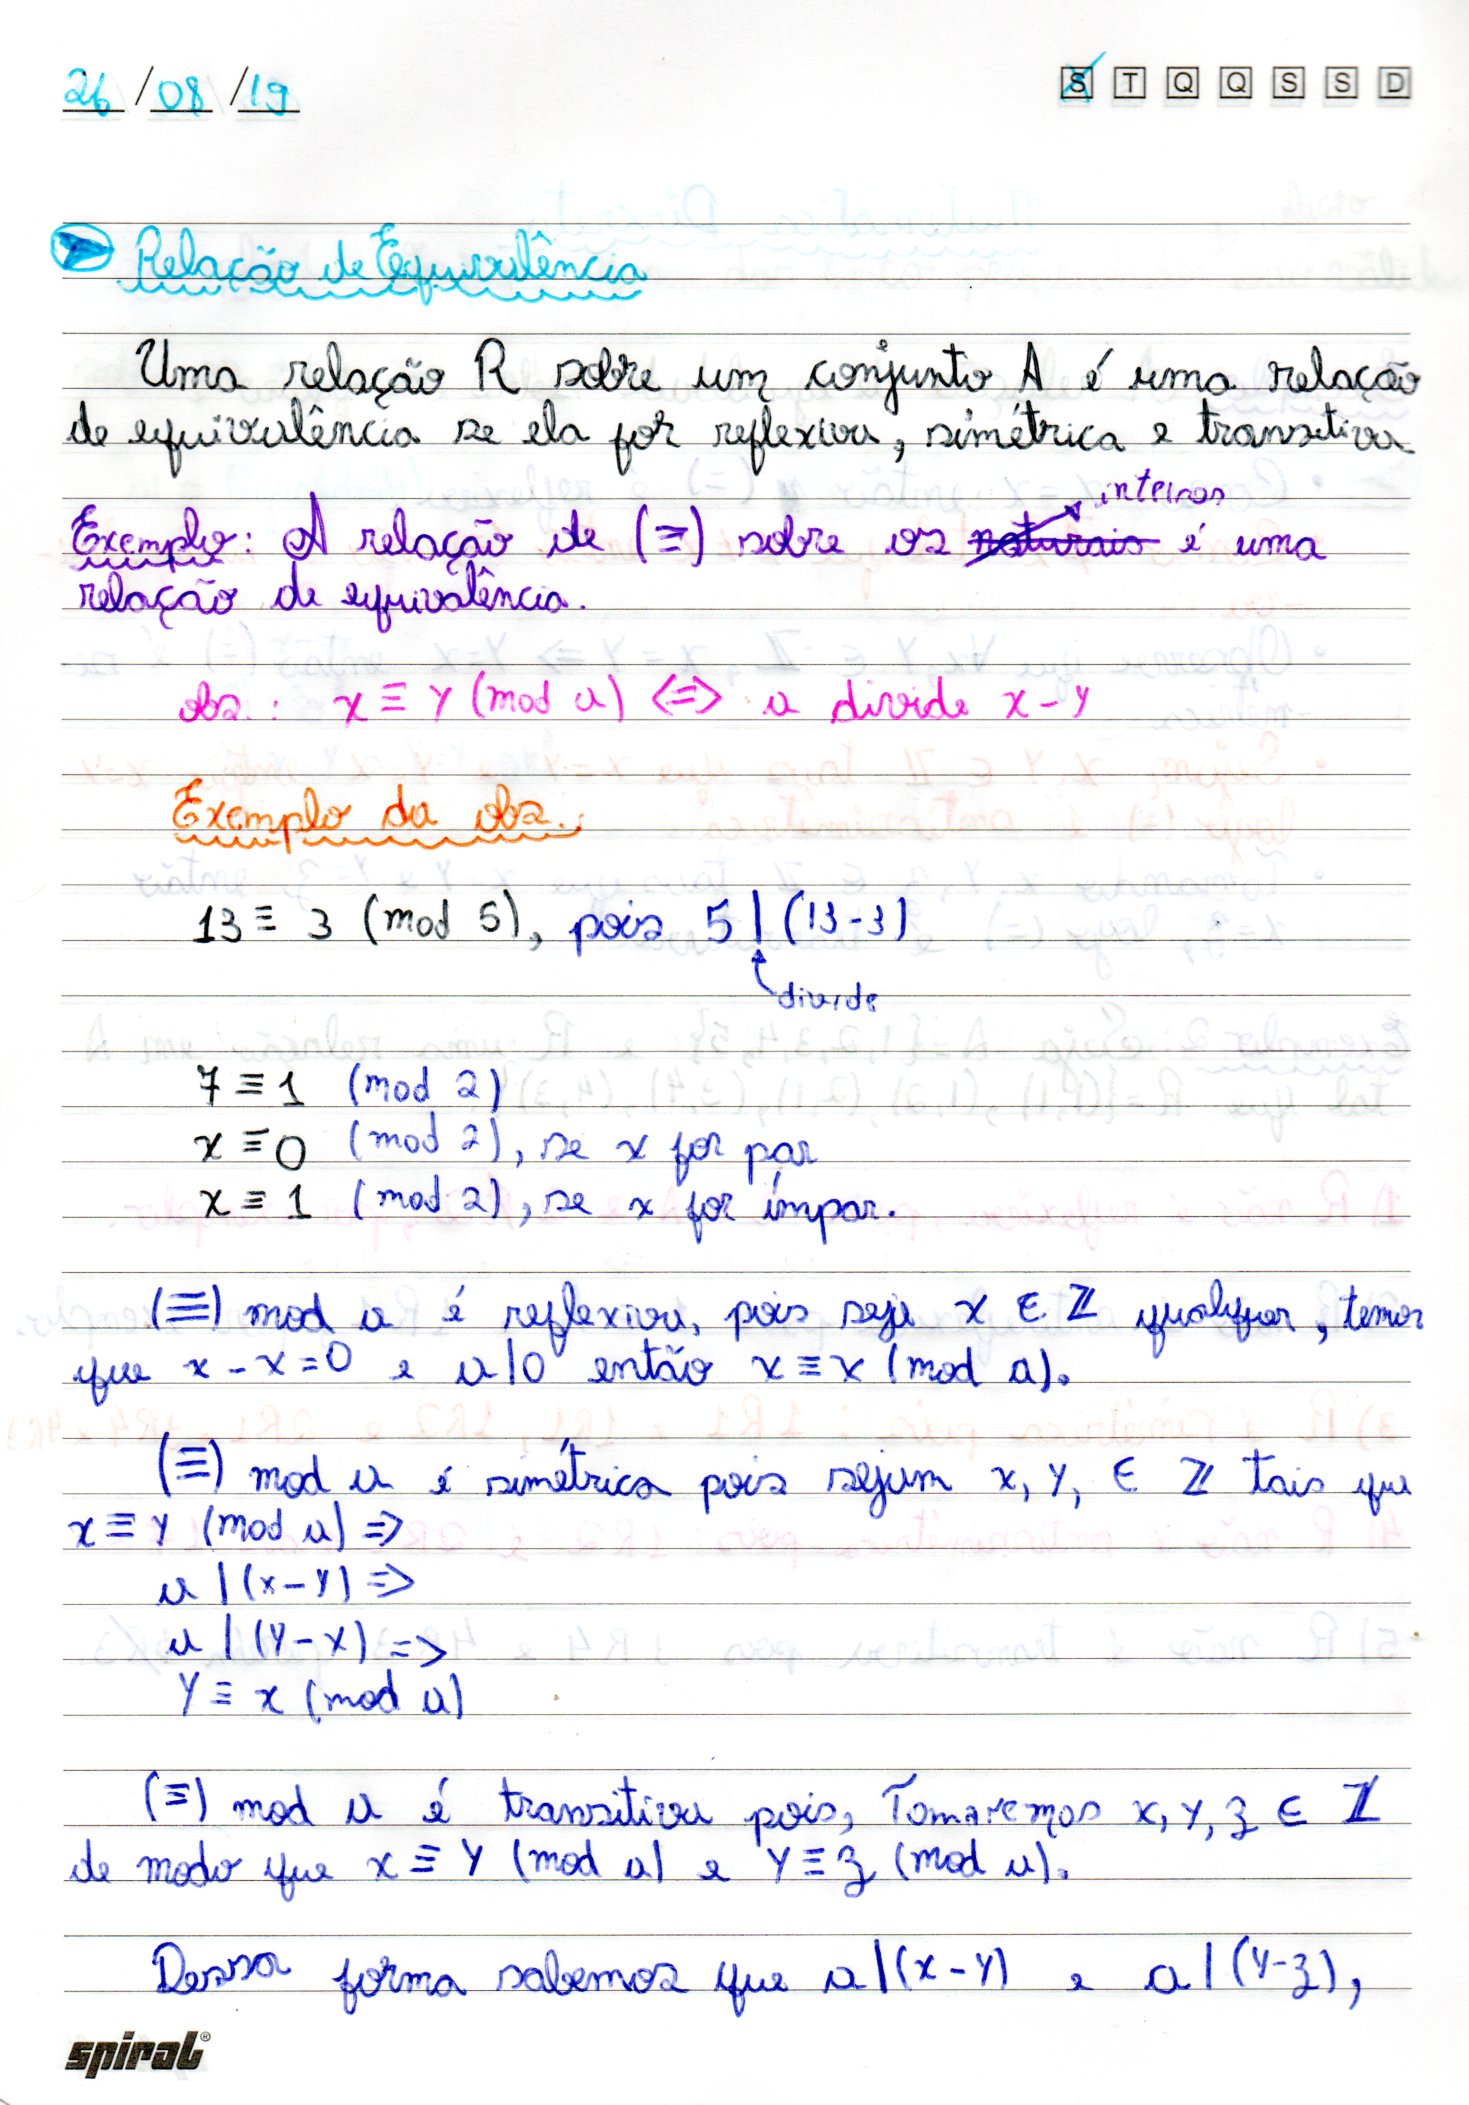 26/08/19 S T Q Q S S D
Relação de Equivalência
Uma relação R sobre um conjunto A é uma relação
de equivalência se ela for reflexiva, simétrica e transitiva
inteiros
Exemplo: A relação de (≡) sobre os naturais é uma
relação de equivalência.
obs.: x ≡ y (mod a) <=> a divide x-y
Exemplo da obs.:
13 ≡ 3 (mod 5), pois 5 | (13-3)
divide
7 ≡ 1 (mod 2)
x ≡ 0 (mod 2), se x for par
x ≡ 1 (mod 2), se x for ímpar.
(≡) mod a é reflexiva, pois seja x ∈ ℤ qualquer, temos
que x - x = 0 e a|0 então x ≡ x (mod a).
(≡) mod a é simétrica pois sejam x, y, ∈ ℤ tais que
x ≡ y (mod a) =>
a | (x-y) =>
a | (y-x) =>
y ≡ x (mod a)
(≡) mod a é transitiva pois, Tomaremos x, y, z ∈ ℤ
de modo que x ≡ y (mod a) e y ≡ z (mod a).
Dessa forma sabemos que a|(x-y) e a|(y-z),
spiral®